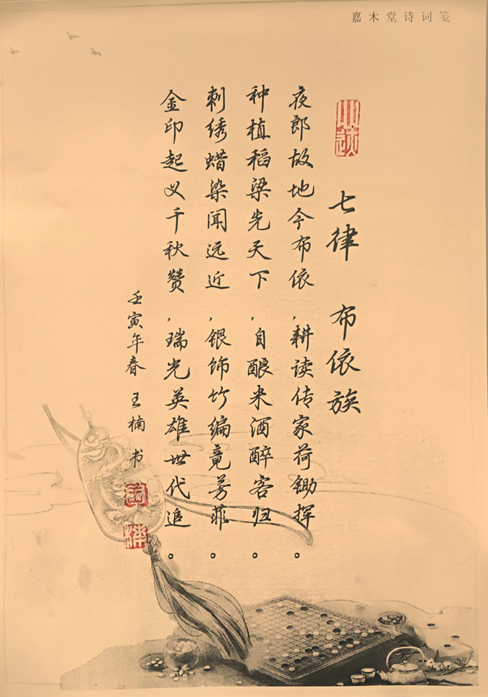 嘉木堂诗词笺
七律 布依族
夜郎故地今布依，耕读传家荷锄挥。
种植稻梁先天下，自酿米酒醉客归。
刺绣蜡染闻远近，银饰竹编竟芳菲。
金印起义千秋赞，瑞光英雄世代追。
壬寅年春 王楠 书